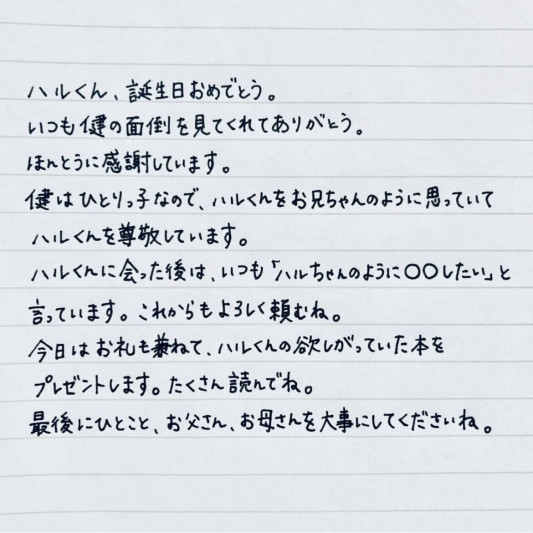 ハルくん、誕生日おめでとう。
いつも健の面倒を見てくれてありがとう。
ほんとうに感謝しています。
健はひとりっ子なので、ハルくんをお兄ちゃんのように思っていて
ハルくんを尊敬しています。
ハルくんに会った後は、いつも「ハルちゃんのように〇〇したい」と
言っています。これからもよろしく頼むね。
今日はお礼も兼ねて、ハルくんの欲しがっていた本を
プレゼントします。たくさん読んでね。
最後にひとこと、お父さん、お母さんを大事にしてくださいね。